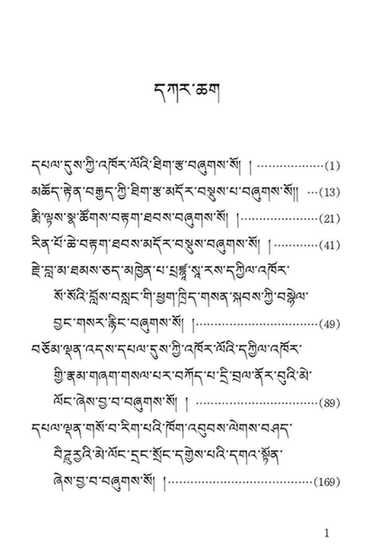 དཀར་ཆག
དཔལ་དུས་ཀྱི་འཁོར་ལོའི་ཐིག་རྩ་བཞུགས་སོ། །………………(1)
མཆོད་རྟེན་བརྒྱད་ཀྱི་ཐིག་རྩ་མདོར་བསྡུས་པ་བཞུགས་སོ།། …(13)
རྨི་ལྟས་སྣ་ཚོགས་བརྟག་ཐབས་བཞུགས་སོ། །…………………(21)
རིན་པོ་ཆེ་བརྟག་ཐབས་མདོར་བསྡུས་བཞུགས་སོ། །…………(41)
རྗེ་བླ་མ་ཐམས་ཅད་མཁྱེན་པ་པྲཛྙཱ་སཱ་རས་དཀྱིལ་འཁོར་
སོ་སོའི་བློས་བསླང་གི་ཕྱག་ཁྲིད་གསན་སྐབས་ཀྱི་བསྙེལ་
བྱང་གསར་རྙིང་བཞུགས་སོ། །……………………………(49)
བཅོམ་ལྡན་འདས་དཔལ་དུས་ཀྱི་འཁོར་ལོའི་དཀྱིལ་འཁོར་
གྱི་རྣམ་གཞག་གསལ་པར་བཀོད་པ་དྲི་བྲལ་ནོར་བུའི་མེ་
ལོང་ཞེས་བྱ་བ་བཞུགས་སོ། །……………………………(89)
དཔལ་ལྡན་གསོ་བ་རིག་པའི་ཁོག་འབུབས་ལེགས་བཤད་
བཻཌཱུརྱའི་མེ་ལོང་དྲང་སྲོང་དགྱེས་པའི་དགའ་སྟོན་
ཞེས་བྱ་བ་བཞུགས་སོ། །…………………………………(169)
1